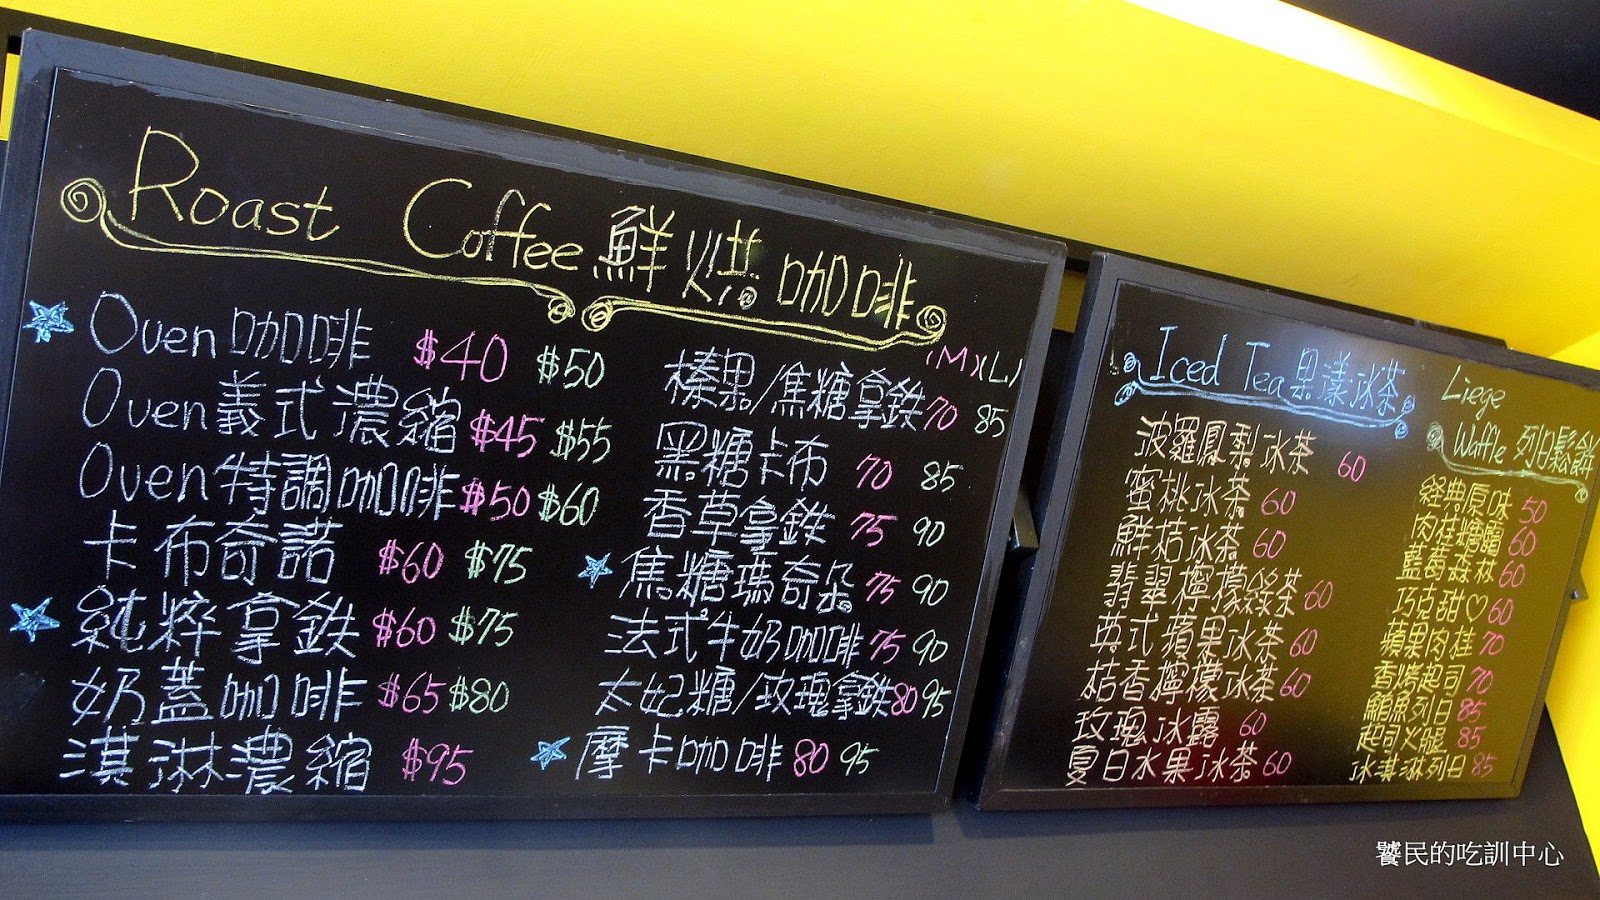 Roast Coffee 鮮烘咖啡
Oven咖啡 $40 $50
Oven義式濃縮 $45 $55
Oven特調咖啡 $50 $60
卡布奇諾 $60 $75
純粹拿鉄 $60 $75
奶蓋咖啡 $65 $80
淇淋濃縮 $95
(M)(L)
榛果/焦糖拿鉄 70 85
黑糖卡布 70 85
香草拿鉄 75 90
焦糖瑪奇朵 75 90
法式牛奶咖啡 75 90
太妃糖/玫瑰拿鉄 80 95
摩卡咖啡 80 95
Iced Tea 果漾冰茶
波羅鳳梨冰茶 60
蜜桃冰茶 60
鮮桔冰茶 60
翡翠檸檬綠茶 60
英式蘋果冰茶 60
桔香檸檬冰茶 60
玫瑰冰露 60
夏日水果冰茶 60
Liege
Waffle 列日鬆餅
経典原味 50
肉桂糖霜 60
藍莓森林 60
巧克甜♡ 60
蘋果肉桂 70
香烤起司 70
鮪魚列日 85
起司火腿 85
冰淇淋列日 85
饕民的吃訓中心